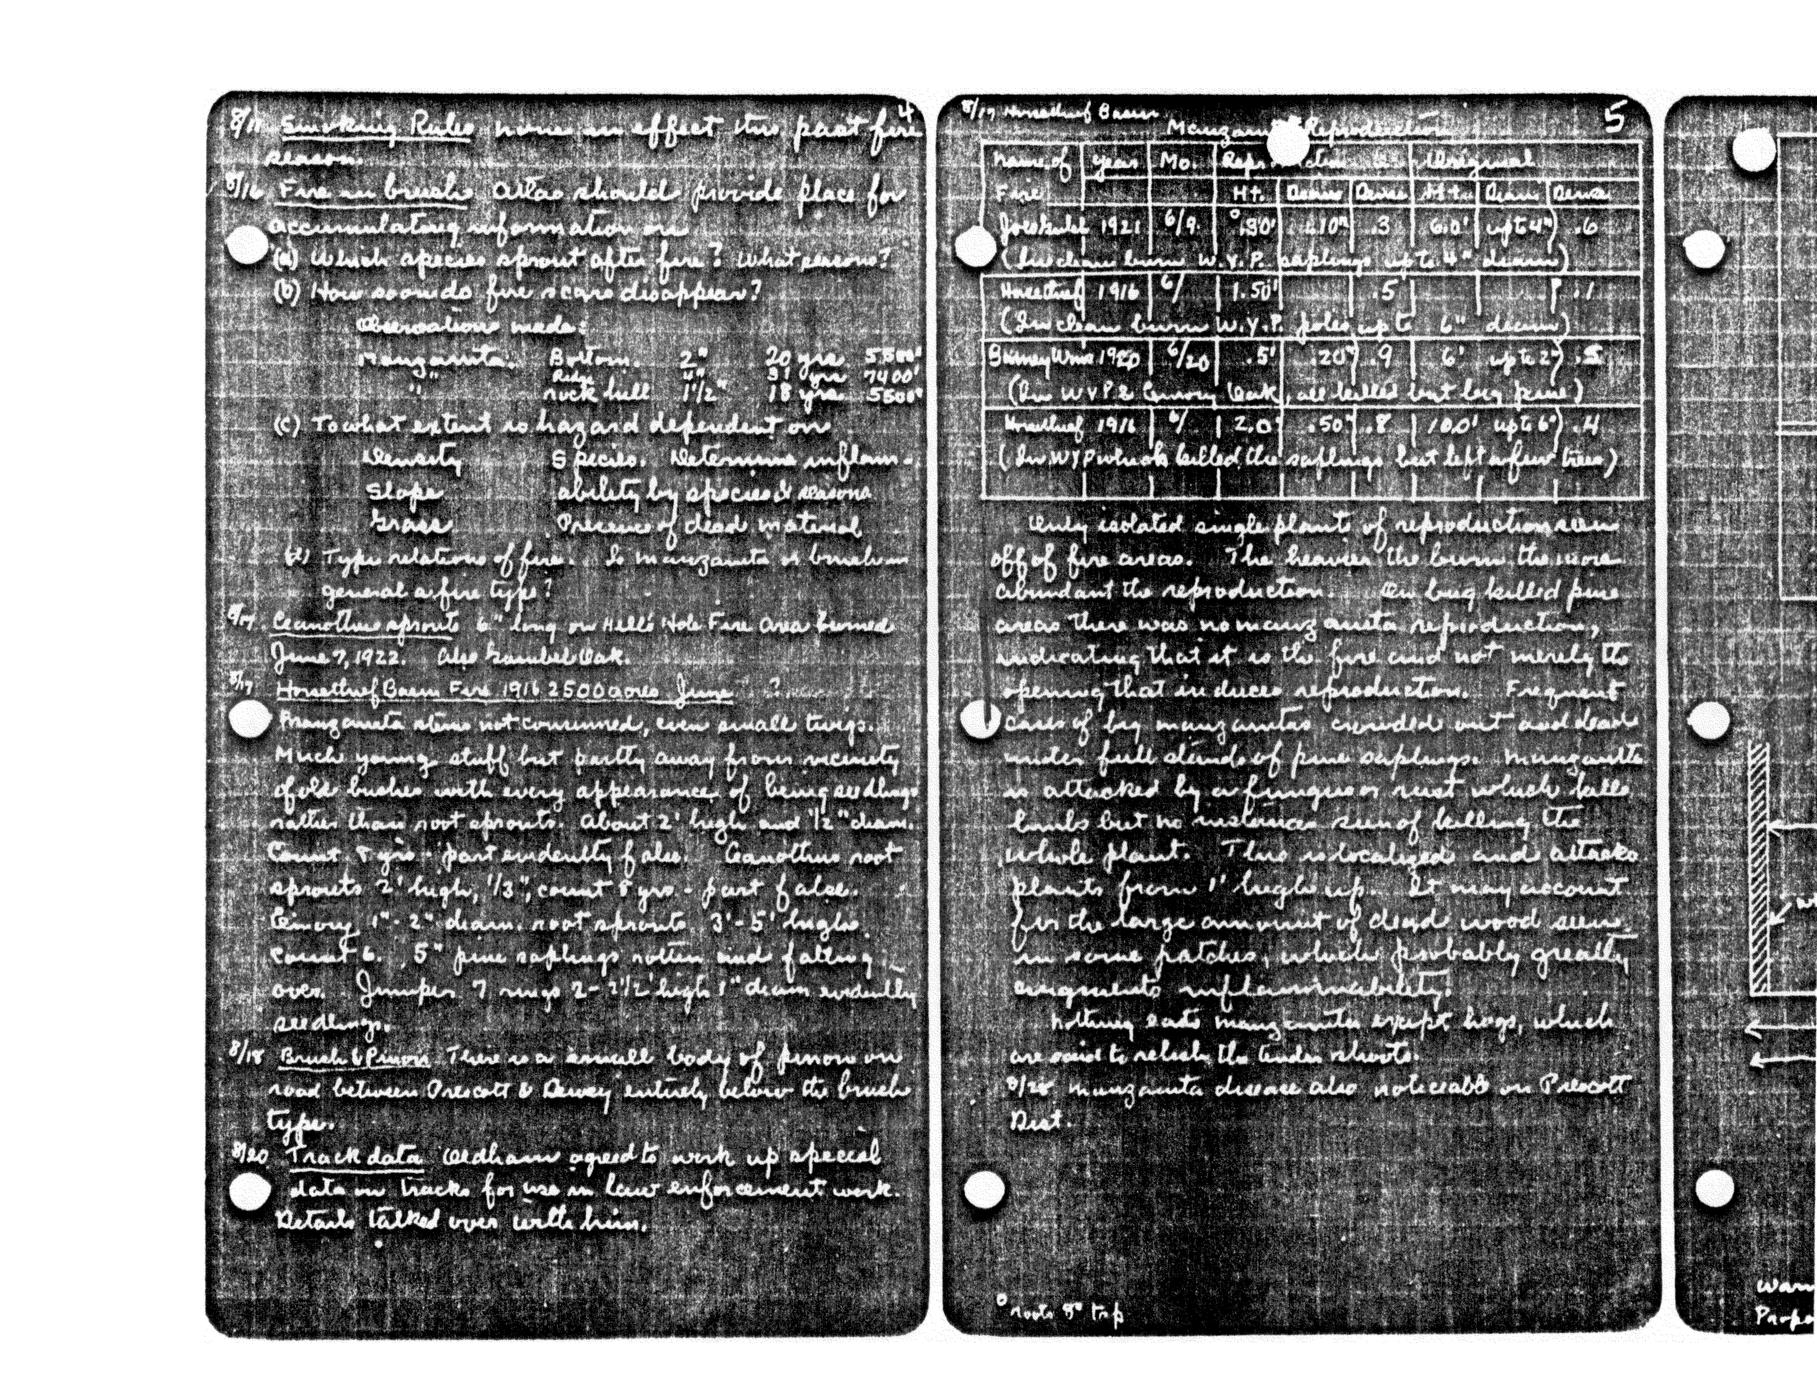 4
8/11 Smoking Rules none in effect this past fire
season.
8/16 Fire in brush Atlas should provide place for
accumulating information on
(a) Which species sprout after fire? What seasons?
(b) How soon do fire scars disappear?
Observations made:
Manzanita. Bottom. 2" 20 yrs 5500'
" Ridge 4" 31 yrs 7400'
rock hill 1 1/2" 18 yrs 5500'
(c) To what extent is hazard dependent on
Density Species. Determine inflam-
Slope ability by species & seasons
Grass Presence of dead material
(d) Type relations of fire. Is manzanita or brush in
general a fire type?
8/17. Ceanothus sprouts 6" long on Hell's Hole Fire Area burned
June 7, 1922. Also Gambel Oak.
8/17 Horsethief Basin Fire 1916 2500 acres June ?
Manzanita stems not consumed, even small twigs.
Much young stuff but partly away from vicinity
of old bushes with every appearance of being seedlings
rather than root sprouts. About 2' high and 1/2" diam.
Count yrs - part evidently false. Ceanothus root
sprouts 2' high, 1/3", count 8 yrs - part false.
Emory 1"- 2" diam. root sprouts 3'-5' high.
Count 6. 5" pine saplings rotten and falling
over. Juniper 7 rings 2-2 1/2' high 1" diam evidently
seedlings.
8/18 Brush & Pinon There is a small body of pinon on
road between Prescott & Dewey entirely below the brush
type.
8/20 Track data Oldham agreed to work up special
data on tracks for use in law enforcement work.
Details talked over with him.
8/17 Horsethief Basin 5
Manzanita Reproduction
Name of year Mo. Reproduction Original
Fire Ht. Diam Dense Ht. Diam Dense
1921 6/9 °.30' .10" .3 6.0' up to 4" .6
(In clean burn W.Y.P. saplings up to 4" diam)
Horsethief 1916 6/ 1.50' .5 .1
(In clean burn W.Y.P. poles up to 6" diam)
1920 6/20 .5' .20" .9 6' up to 2" .5
(In W.Y.P. & Emory Oak, all killed but big pine)
Horsethief 1916 6/ 2.0' .50" .8 10.0' up to 6" .4
(In WYP which killed the saplings but left a few trees)
Only isolated single plants of reproduction seen
off of fire areas. The heavier the burn the more
abundant the reproduction. On bug killed pine
areas there was no manzanita reproduction,
indicating that it is the fire and not merely the
opening that induces reproduction. Frequent
cases of big manzanitas crowded out and dead
under full stands of pine saplings. Manzanita
is attacked by a fungus or rust which kills
limbs but no instances seen of killing the
whole plant. This is localized and attacks
plants from 1' high up. It may account
for the large amount of dead wood seen
in some patches, which probably greatly
augments inflammability.
Nothing eats manzanita except hogs, which
are said to relish the tender shoots.
8/28 Manzanita disease also noticeable on Prescott
Dist.
° roots 8" top